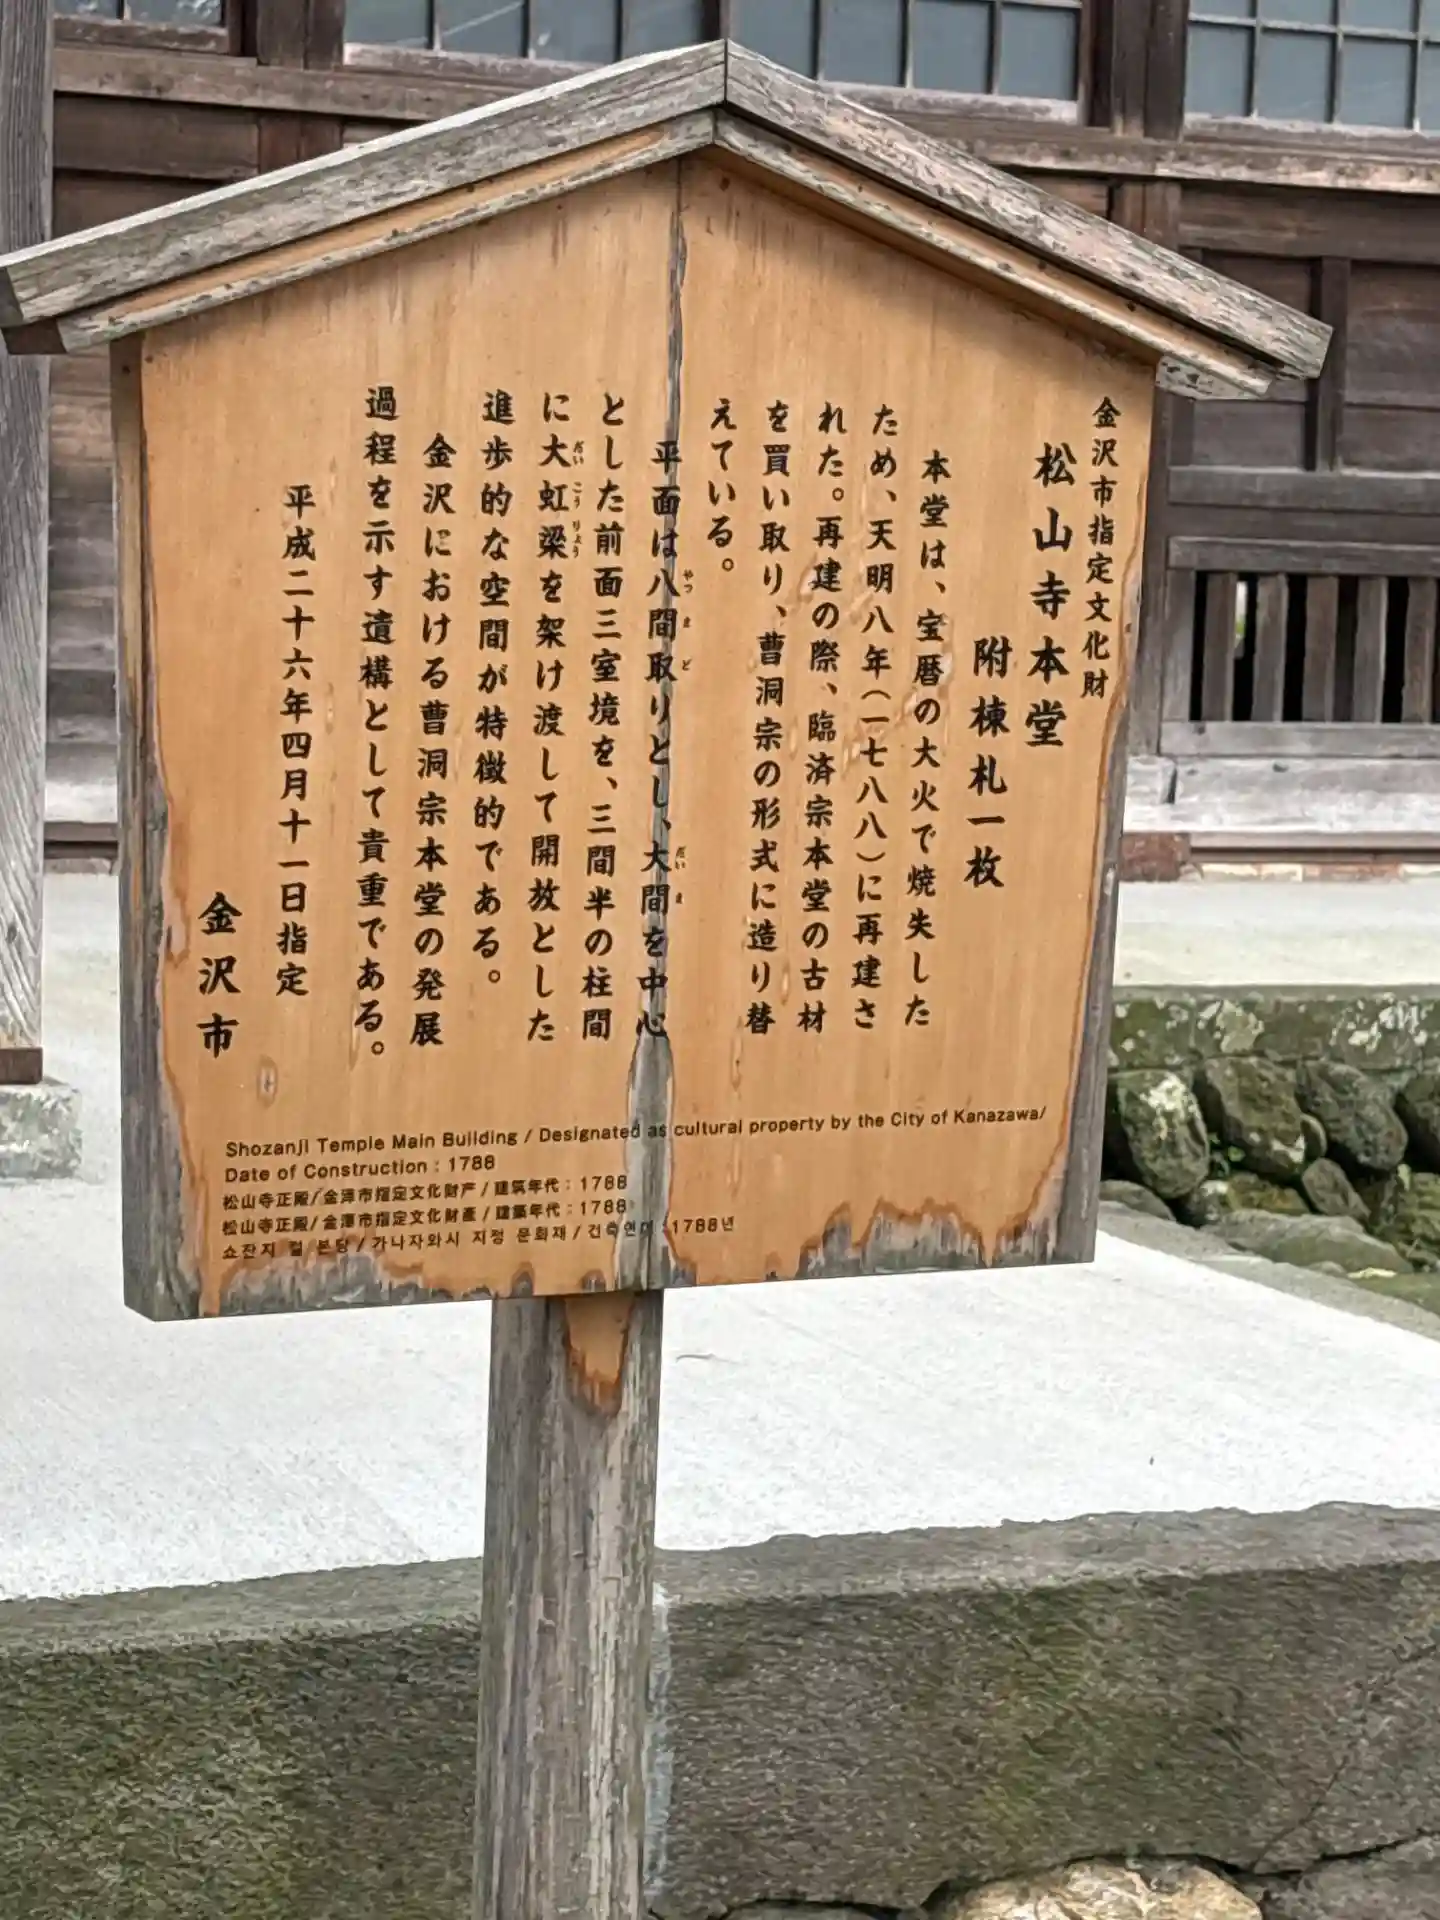 金沢市指定文化財
松山寺本堂
附棟札一枚
本堂は、宝暦の大火で焼失した
ため、天明八年(一七八八)に再建さ
れた。再建の際、臨済宗本堂の古材
を買い取り、曹洞宗の形式に造り替
えている。
平面は八間取りとし、大間を中心
やつまど
だいま
とした前面三室境を、三間半の柱間
に大虹梁を架け渡して開放とした
だいこうりょう
進歩的な空間が特徴的である。
金沢における曹洞宗本堂の発展
過程を示す遺構として貴重である。
平成二十六年四月十一日指定
金沢市
Shozanji Temple Main Building / Designated as cultural property by the City of Kanazawa/
Date of Construction : 1788
松山寺正殿/金泽市指定文化财产/建筑年代:1788
松山寺正殿/金澤市指定文化財產/建築年代:1788
쇼잔지 절 본당/가나자와시 지정 문화재/건축연대:1788년